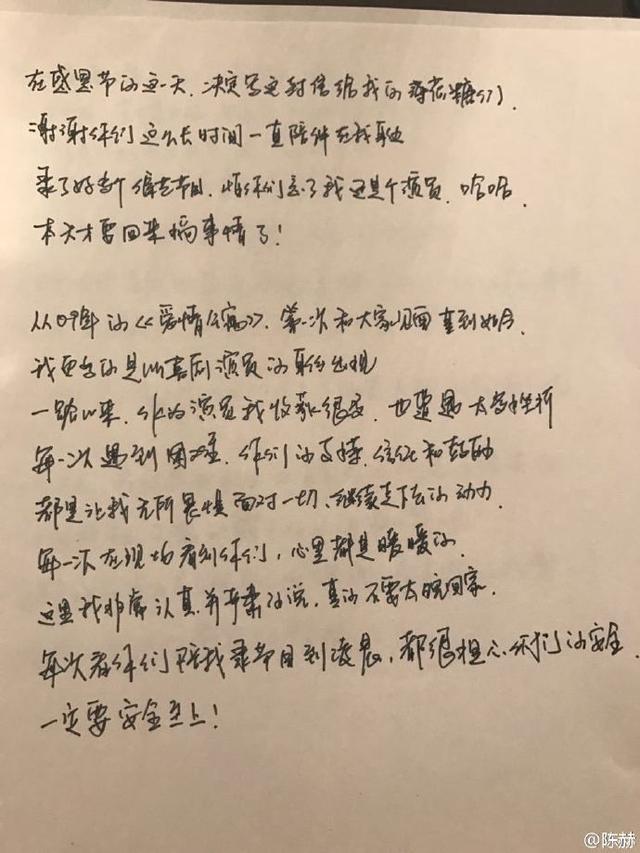 在感恩节的这一天、决定写这封信给我的薄荷糖们.
谢谢你们这么长时间一直陪伴在我身边
录了好多个综艺节目、怕你们忘了我还是个演员. 哈哈.
本天才要回来搞事情了!
从09年的《爱情公寓》、第一次和大家见面 直到如今.
我更多的是以喜剧演员的身份出现
一路以来. 作为演员我收获很多. 也遭遇太多挫折
每一次遇到困难. 你们的支持. 信任和鼓励
都是让我无所畏惧面对一切、继续走下去的动力.
每一次在现场看到你们, 心里都是暖暖的.
这里我非常认真并严肃的说, 真的不要太晚回家.
每次看你们陪我录节目到凌晨, 都很担心你们的安全.
一定要安全至上!
@陈赫